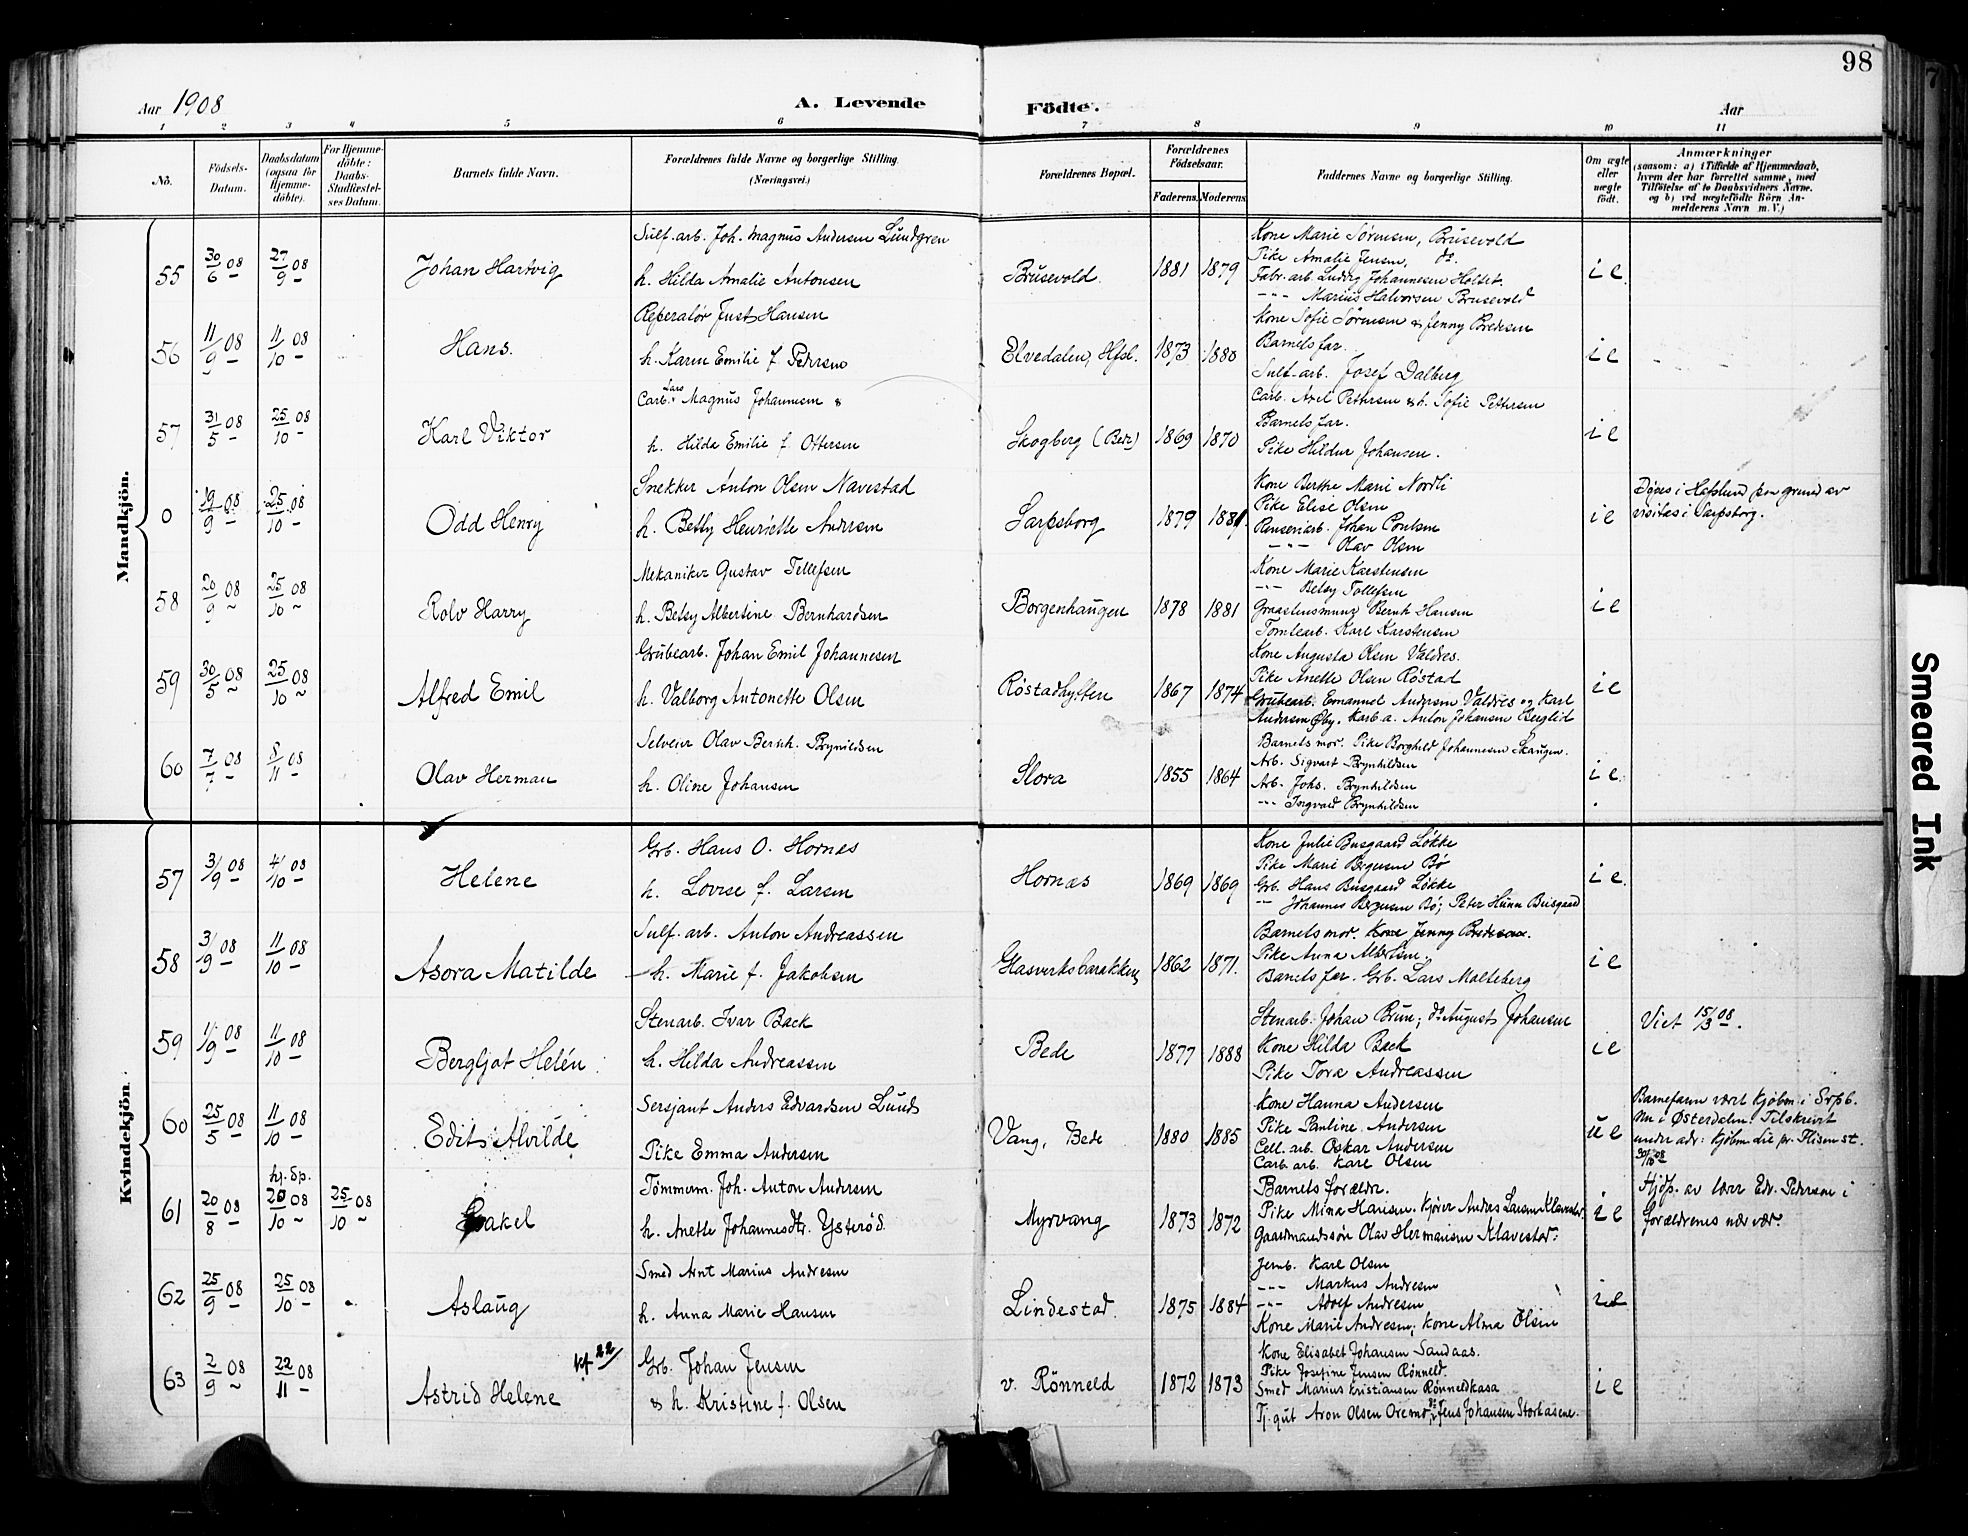 98
Aar 1908 A. Levende Födte. Aar
1 2 3 4 5 6 7 8 9 10 11
No. Födsels-Datum. Daabsdatum (ogsaa for Hjemme-döbte). For Hjemme-döbte: Daabs-Stadfæstel-ses Datum. Barnets fulde Navn. Forældrenes fulde Navne og borgerlige Stilling. (Næringsvei.) Forældrenes Bopæl. Forældrenes Födselsaar. Faderens. Moderens. Faddernes Navne og borgerlige Stilling. Om ægte eller uægte födt. Anmærkninger (saasom: a) i Tilfælde af Hjemmedaab, hvem der har forrettet samme, med Tilföielse af to Daabsvidners Navne. og b) ved uægtefödte Börn An-melderens Navn m. V.)
Mandkjön.
55 30/6 08 27/9 08 Johan Hartvig
Sulf. arb. Joh. Magnus Andersen Lundgren
h. Hilda Amalie Antonsen
Brusevold 1881 1879
Kone Marie Sørensen, Brusevold
Pike Amalie Jensen, do.
Fabr. arb Ludvig Johannesen Holset.
-"- Marius Halvorsen Brusevold
i e
56 11/9 08 11/10 08 Hans.
Reperatør Just Hansen
h. Karen Emilie f. Petersen
Elvedalen, Hfsl. 1873 1880
Kone Sofie Sørensen & Jenny Bredesen
Barnets far.
Sulf. arb. Josef Dalberg
i e
57 31/5 08 25/10 08 Karl Viktor
Carb. Lars Magnus Johannesen &
h. Hilda Emilie f. Ottersen
Skogberg (Bede) 1869 1870
Carb. Axel Pettersen & h. Sofie Pettersen
Barnets far.
Pike Hildur Johansen.
i e
0 19/9 08 25/10 08 Odd Henry
Snekker Anton Olsen Navestad
h. Betty Henriette Andersen
Sarpsborg 1879 1881
Kone Berthe Marie Nordli
Pike Elise Olsen
Renseriarb. Johan Poulsen
-"- Olav Olsen
i e
Døpes i Hafslund paa grund av
visitas i Sarpsborg.
58 20/9 08 25/10 08 Rolv Harry
Mekaniker Gustav Tellefsen
h. Betsy Albertine Bernhardsen
Borgenhaugen 1878 1881
Kone Marie Karstensen
-"- Betsy Tollefsen
Graastensmurer Bernh Hansen
Tomtearb. Karl Karstensen
i e
59 30/5 08 25/10 08 Alfred Emil
Grubearb. Johan Emil Johannesen
h. Valborg Antonette Olsen
Röstadhytten 1867 1874
Kone Augusta Olsen Valdres.
Pike Anette Olsen Røstad
Grubearb. Emanuel Andersen Valdres og Karl
Andersen Øby. Karb a. Anton Johansen Berglid
i e
60 7/7 08 8/11 08 Olav Herman
Selveier Olav Bernh. Brynildsen
h. Oline Johansen
Slora 1855 1864
Barnets mor. Pike Borghild Johannesen Skaugen.
Arb. Sigvart Brynhildsen
Arb. Johs. Brynhildsen
-"- Ingvald Brynhildsen
i e
Kvindekjön.
57 3/9 08 4/10 08 Helene
Grb. Hans O. Hornes
h. Lovise f. Larsen
Hornæs 1869 1869
Kone Julie Busgaard Løkke
Pike Marie Bergersen Bø
Grb. Hans Busgaard Løkke
-"- Johannes Bergersen Bø; Peter Hunn Busgaard
i e.
58 3/9 08 11/10 08 Asora Matilde
Sulf. arb. Anton Andreassen
h. Marie f. Jakobsen
Glasverksbarakken 1862 1871.
Barnets mor. Kone Jenny Bredesen.
Pike Anna Albertsen.
Barnets far. Grb. Lars Molteberg
i e
59 1/9 08 11/10 08 Bergljot Helén
Stenarb. Ivar Back
h. Hilda Andreassen
Bede 1877 1888
Stenarb. Johan Brun; do August Johansen
Kone Hilda Back
Pike Tora Andreassen
i e
Viet 15/3 08.
60 25/5 08 11/10 08 Edits Alvilde
Sersjant Anders Edvardsen Lunds
Pike Emma Andersen
Vang, Bede 1880 1885
Kone Hanna Andersen
Pike Pauline Andersen
Cell. arb. Oskar Andersen
Carb. arb. Karl Olsen
u e
Barnefaren vært kjøbm. i Srpb.
Nu i Østerdalen. Tilskrevet
under adr: kjøbm Lie pr. Flisen st.
30/10 08
61 20/8 08 hj. dp. 20/10 08 25/10 08 Rakel
Tömmerm. Joh. Anton Andersen
h. Anette Johannesdtr. Ysteröd.
Myrvang 1873 1872
Barnets forældr.
Pike Mina Hansen. kjører Anders Larsen Klavestad.
Gaardmandssön Olav Hermansen Klavestad.
i e
Hjdp. av lærer Edv. Pedersen i
forældrenes nærvær.
62 25/9 08 25/10 08 Aslaug
Smed Arnt Marius Andresen
h. Anna Marie Hansen
Lindestad. 1875 1884
Jernb. Karl Olsen
-"- Markus Andresen
-"- Adolf Andresen
Kone Marie Andresen; Kone Alma Olsen
i e
63 2/9 08 22/11 08 Astrid Helene
Grb. Johan Jensen
& h. Kristine f. Olsen
v. Rönneld 1872 1873
Kone Elisabet Johansen Sandaas.
Pike Josefine Jensen Rønneld.
Smed Marius Kristiansen Rønneldkasa
Tj. gut Aron Olsen Oremo, do Jens Johansen Storkasene.
i e
Smeared Ink